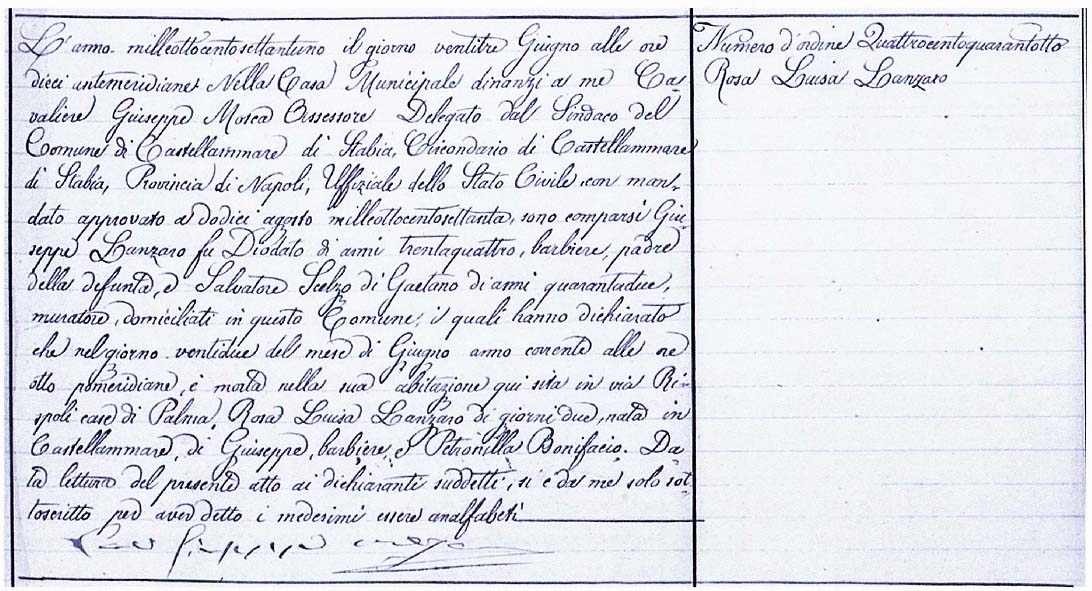 L'anno milleottocentosettantuno il giorno ventitre Giugno alle ore
dieci antemeridiane Nella Casa Municipale dinanzi a me Ca-
valiere Giuseppe Mosca Assessore Delegato dal Sindaco del
Comune di Castellammare di Stabia, Circondario di Castellammare
di Stabia, Provincia di Napoli, Uffiziale dello Stato Civile con man-
dato approvato a dodici agosto milleottocentosettanta, sono comparsi Giu-
seppe Lanzaro fu Diodato di anni trentaquattro, barbiere, padre
della defunta, e Salvatore Scelzo di Gaetano di anni quarantadue,
muratore, domiciliati in questo Comune, i quali hanno dichiarato
che nel giorno ventidue del mese di Giugno anno corrente alle ore
otto pomeridiane, è morta nella sua abitazione qui sita in via Ri-
spoli case di Palma, Rosa Luisa Lanzaro di giorni due, nata in
Castellammare, di Giuseppe, barbiere, e Petronilla Bonifacio. Da-
ta lettura del presente atto ai dichiaranti suddetti, si è da me solo sot-
toscritto per aver detto i medesimi essere analfabeti
Numero d'ordine Quattrocentoquarantotto
Rosa Luisa Lanzaro